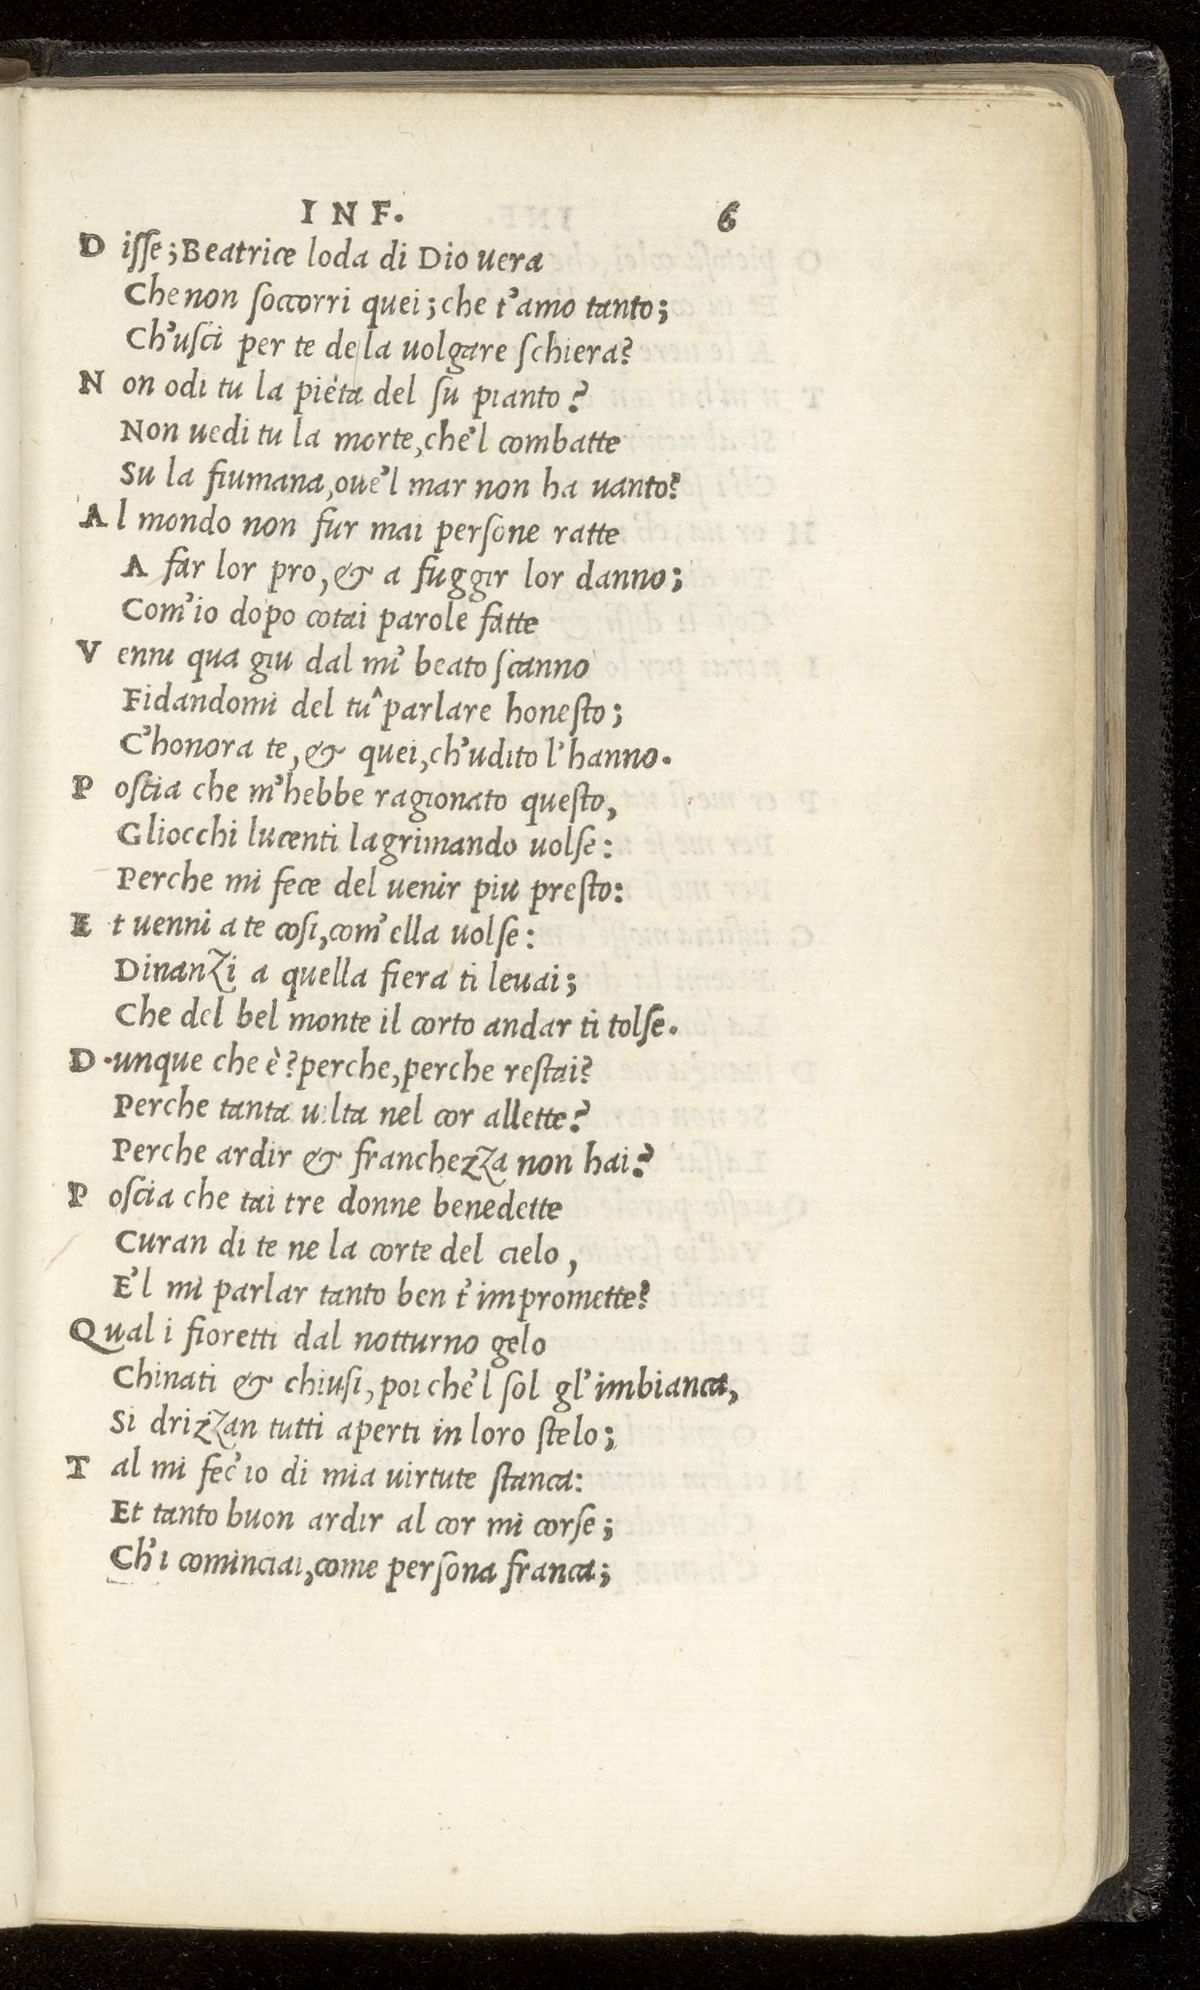 INF. 6
D isse; Beatrice loda di Dio uera
Che non soccorri quei; che t'amo tanto;
Ch'usci per te de la uolgare schiera?
N on odi tu la piéta del su pianto?
Non uedi tu la morte, che'l combatte
Su la fiumana, oue'l mar non ha uanto?
A l mondo non fur mai persone ratte
A far lor pro, & a fuggir lor danno;
Com'io dopo cotai parole fatte
V enni qua giu dal mi' beato scanno
Fidandomi del tu^ parlare honesto;
C'honora te, & quei, ch'udito l'hanno.
P oscia che m'hebbe ragionato questo,
Gliocchi lucenti lagrimando uolse:
Perche mi fece del uenir piu presto:
E t uenni a te cosi, com'ella uolse:
Dinanzi a quella fiera ti leuai;
Che del bel monte il corto andar ti tolse.
D unque che è? perche, perche restai?
Perche tanta uilta nel cor allette?
Perche ardir & franchezza non hai?
P oscia che tai tre donne benedette
Curan di te ne la corte del cielo,
E'l mi parlar tanto ben t'impromette?
Qual i fioretti dal notturno gelo
Chinati & chiusi, poi che'l sol gl'imbianca,
Si drizzan tutti aperti in loro stelo;
T al mi fec'io di mia uirtute stanca:
Et tanto buon ardir al cor mi corse;
Ch'i cominciai, come persona franca;